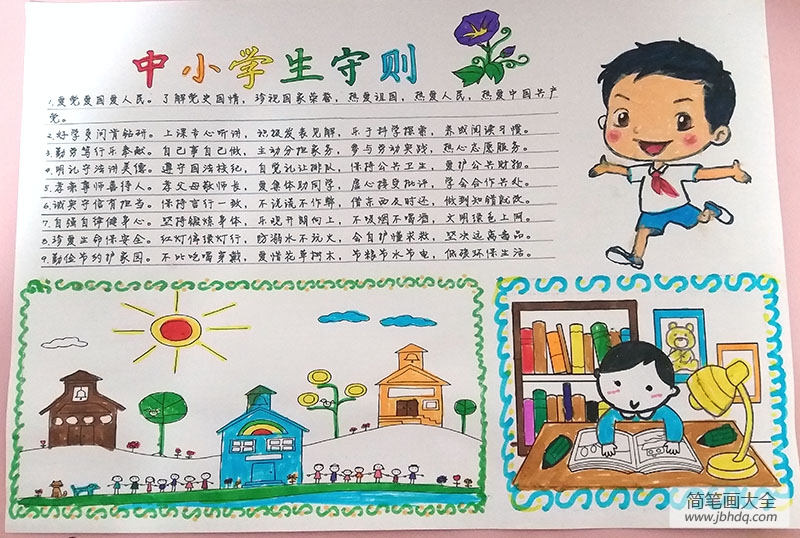 中小学生守则
1.爱党爱国爱人民。了解党史国情，珍视国家荣誉，热爱祖国，热爱人民，热爱中国共产
党。
2.好学多问肯钻研。上课专心听讲，积极发表见解，乐于科学探索，养成阅读习惯。
3.勤劳笃行乐奉献。自己事自己做，主动分担家务，参与劳动实践，热心志愿服务。
4.明礼守法讲美德。遵守国法校纪，自觉礼让排队，保持公共卫生，爱护公共财物。
5.孝亲尊师善待人。孝父母敬师长，爱集体助同学，虚心接受批评，学会合作共处。
6.诚实守信有担当。保持言行一致，不说谎不作弊，借东西及时还，做到知错就改。
7.自强自律健身心。坚持锻炼身体，乐观开朗向上，不吸烟不喝酒，文明绿色上网。
8.珍爱生命保安全。红灯停绿灯行，防溺水不玩火，会自护懂求救，坚决远离毒品。
9.勤俭节约护家园。不比吃喝穿戴，爱惜花草树木，节粮节水节电，低碳环保生活。
简笔画大全
www.jbhdq.com